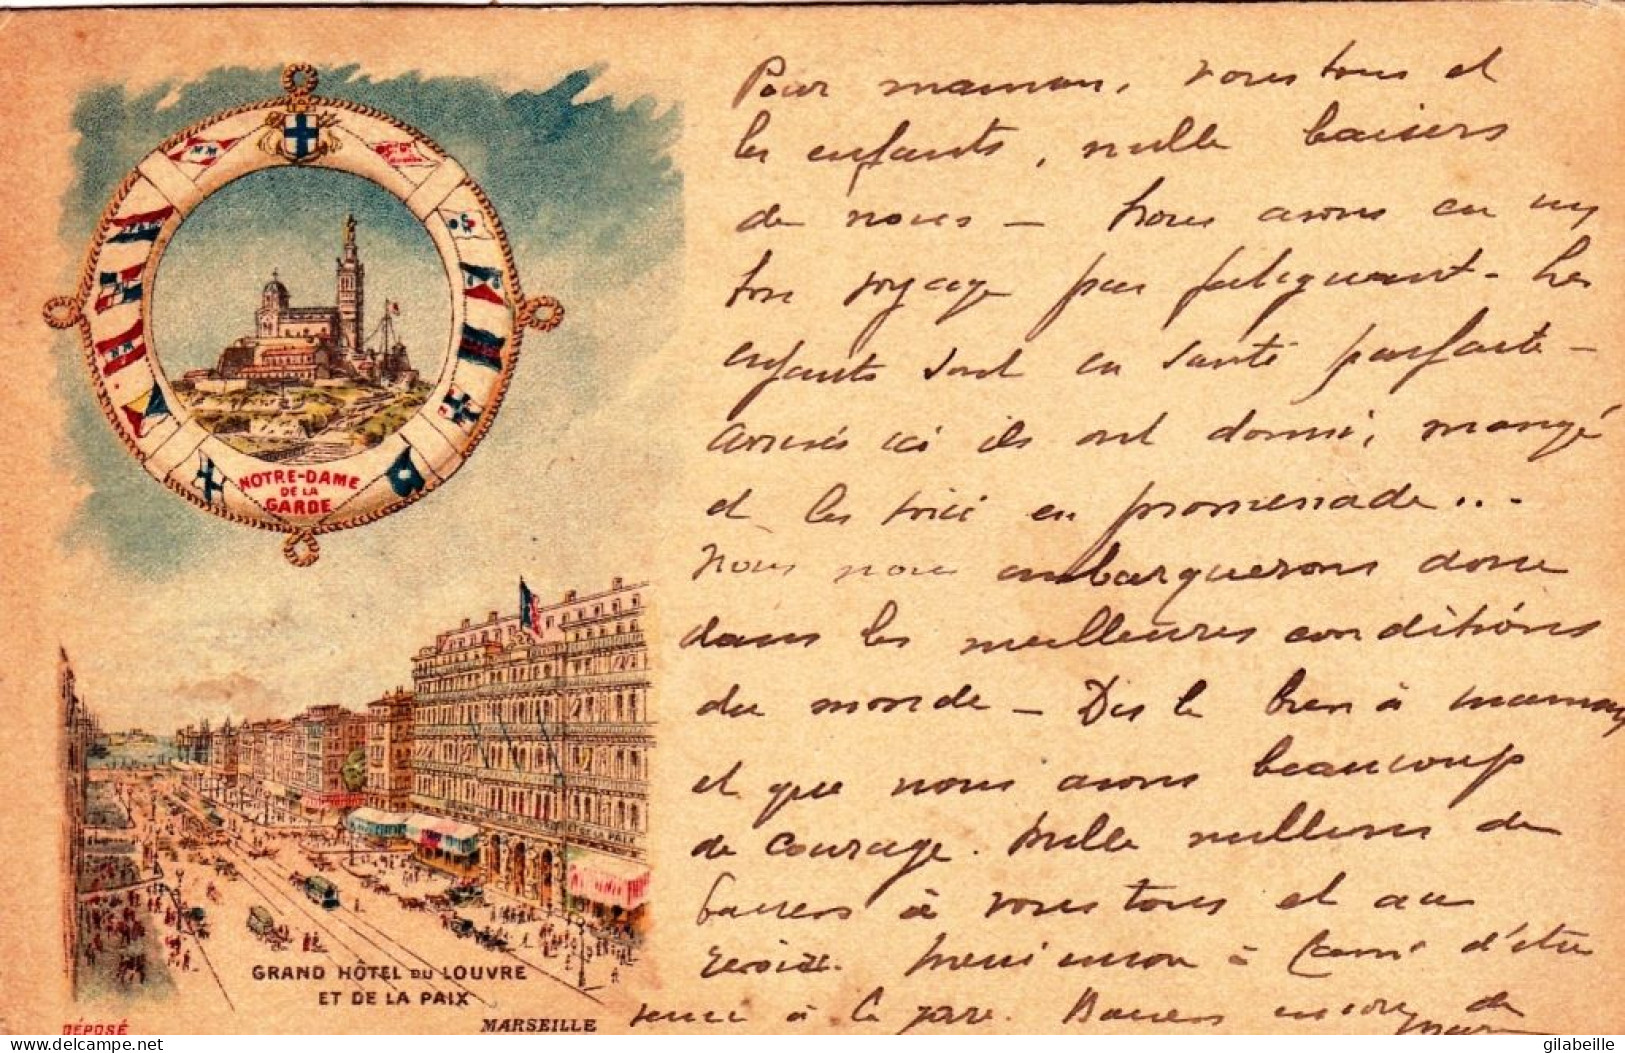 Pour maman, vous tous et
les enfants, mille baisers
de nous — Nous avons eu un
bon voyage pas fatiguant - Les
enfants sont en santé parfaite —
arrivés ici ils ont dormi, mangé
et les voici en promenade...
Nous nous embarquerons donc
dans les meilleures conditions
du monde — Dis le bien à maman
et que nous avons beaucoup
de courage. Mille millions de
baisers à vous tous et au
Merci encore à d'être
venu à la gare. Baisers encore de
NOTRE-DAME
DE LA
GARDE
GRAND HÔTEL DU LOUVRE
ET DE LA PAIX
MARSEILLE
DÉPOSÉ
delcampe.net
gilabeille